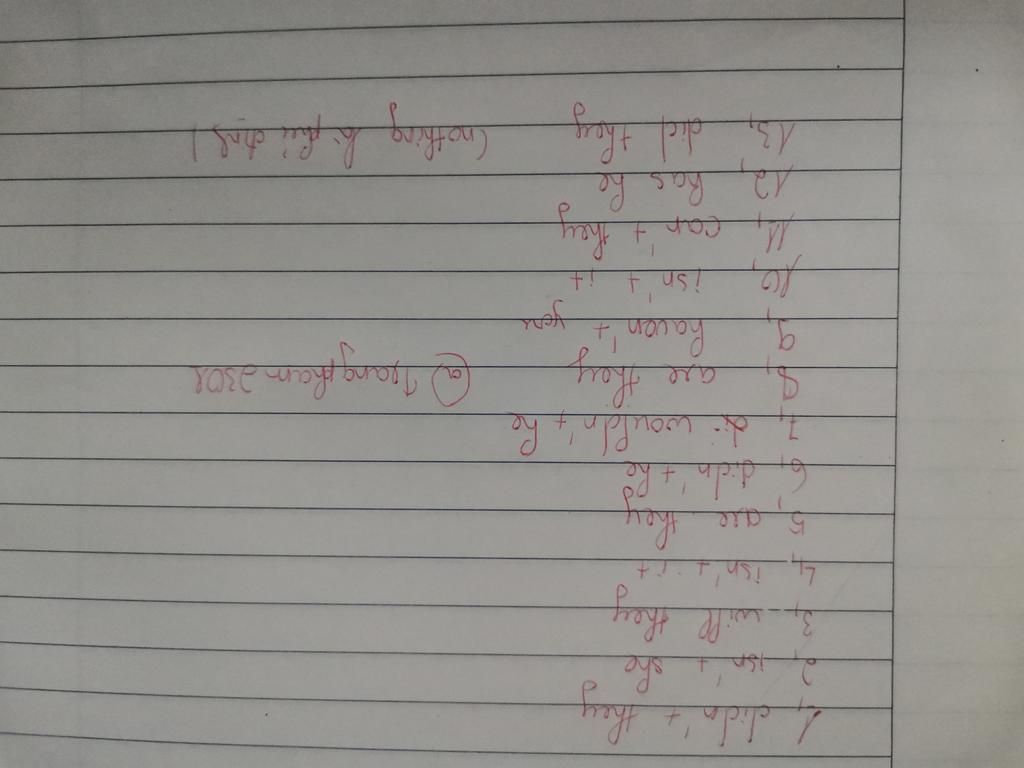 1, didn't they
2, isn't she
3, will they
4, isn't it
5, are they
6, didn't he
7, wouldn't he
8, are they @Trangpham2302
9, haven't you
10, isn't it
11, can't they
12, has he
13, did they (nothing là phủ định)